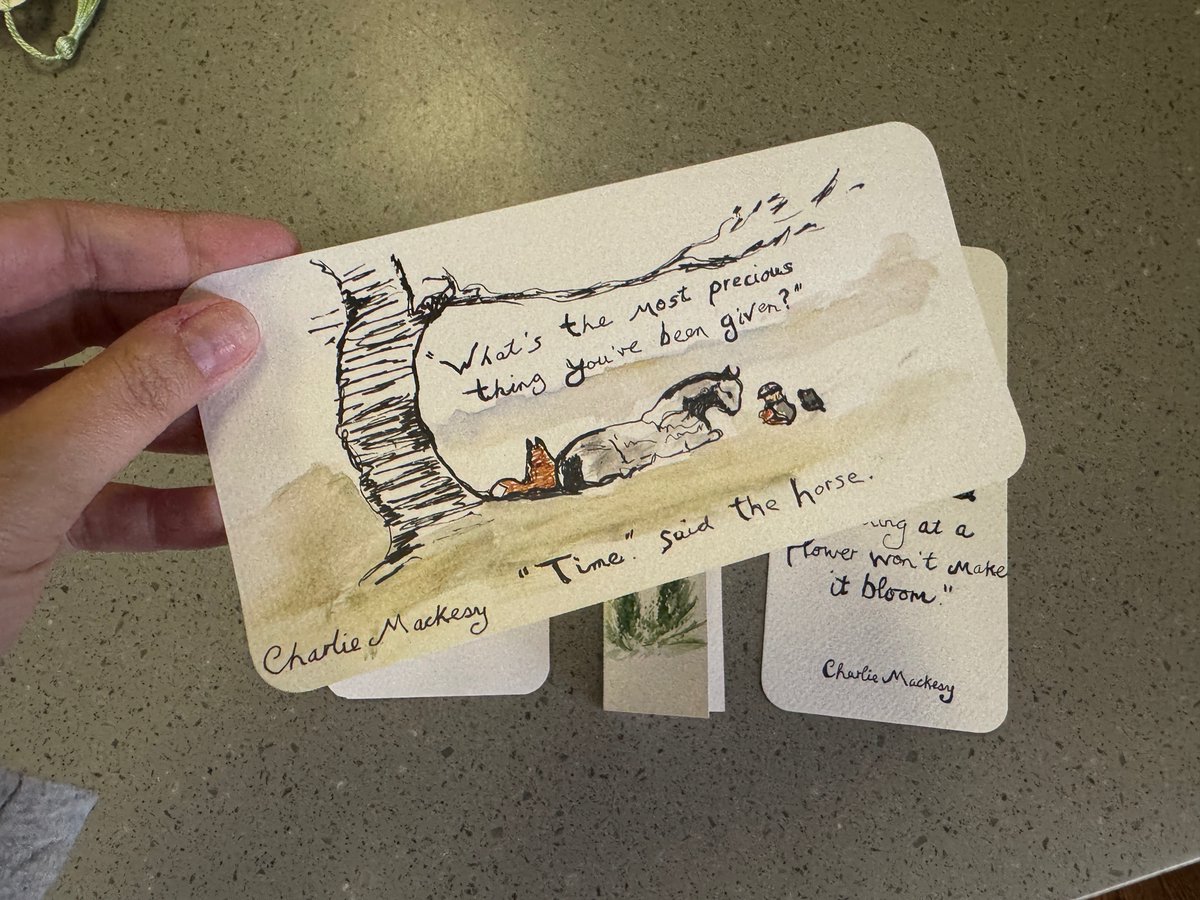 "What's the most precious
thing you've been given?"
"Time". said the horse.
Charlie Mackesy
at a
flower won't make
it bloom."
Charlie Mackesy